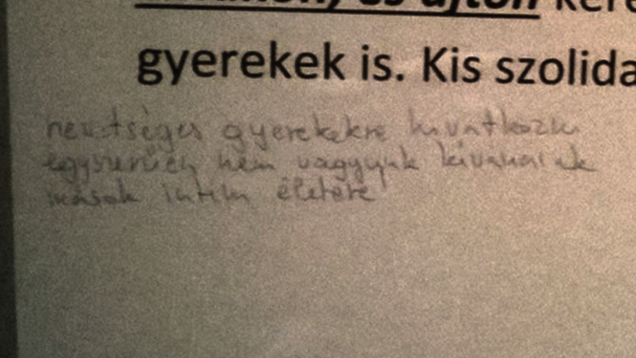 és ajtón
gyerekek is. Kis szolida
nevetséges gyerekekre hivatkozni
egyszerűen nem vagyunk kíváncsiak
mások intim életére